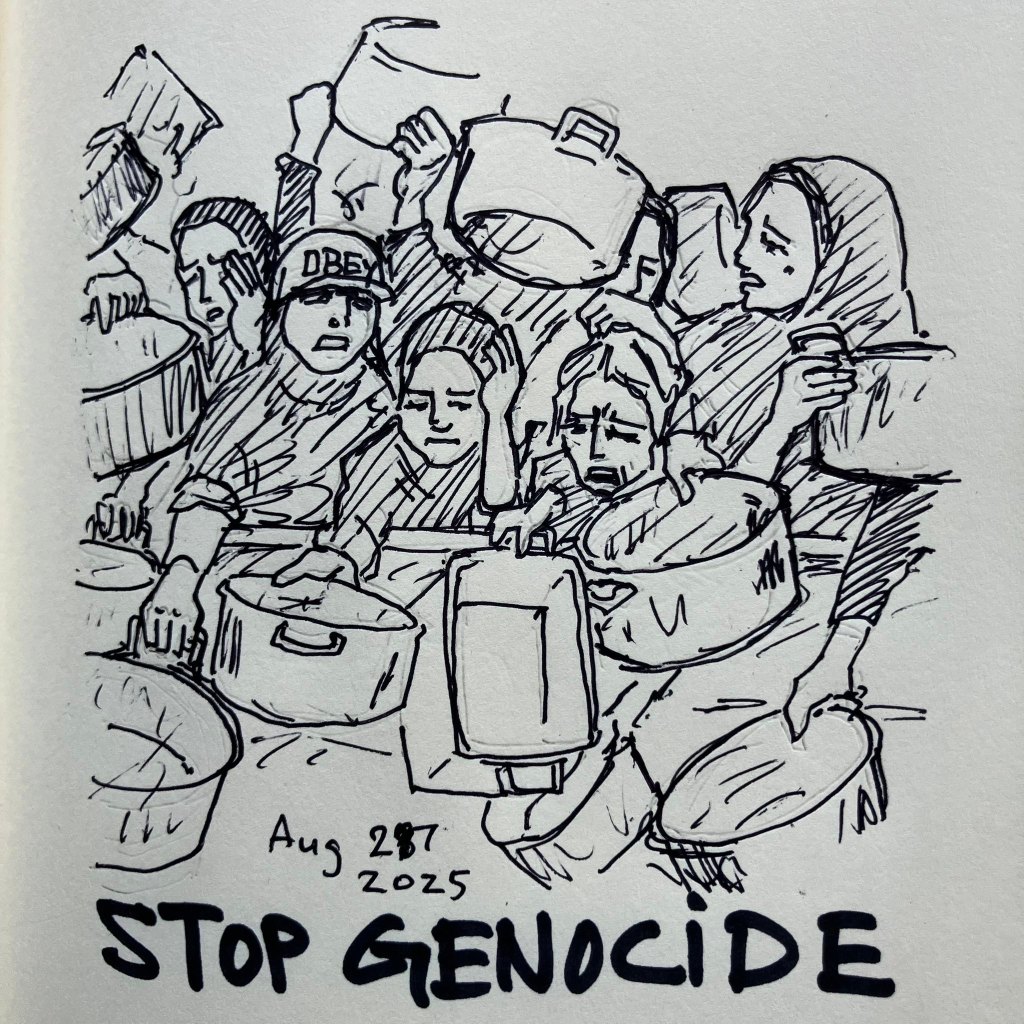 OBEY
Aug 27
2025
STOP GENOCIDE